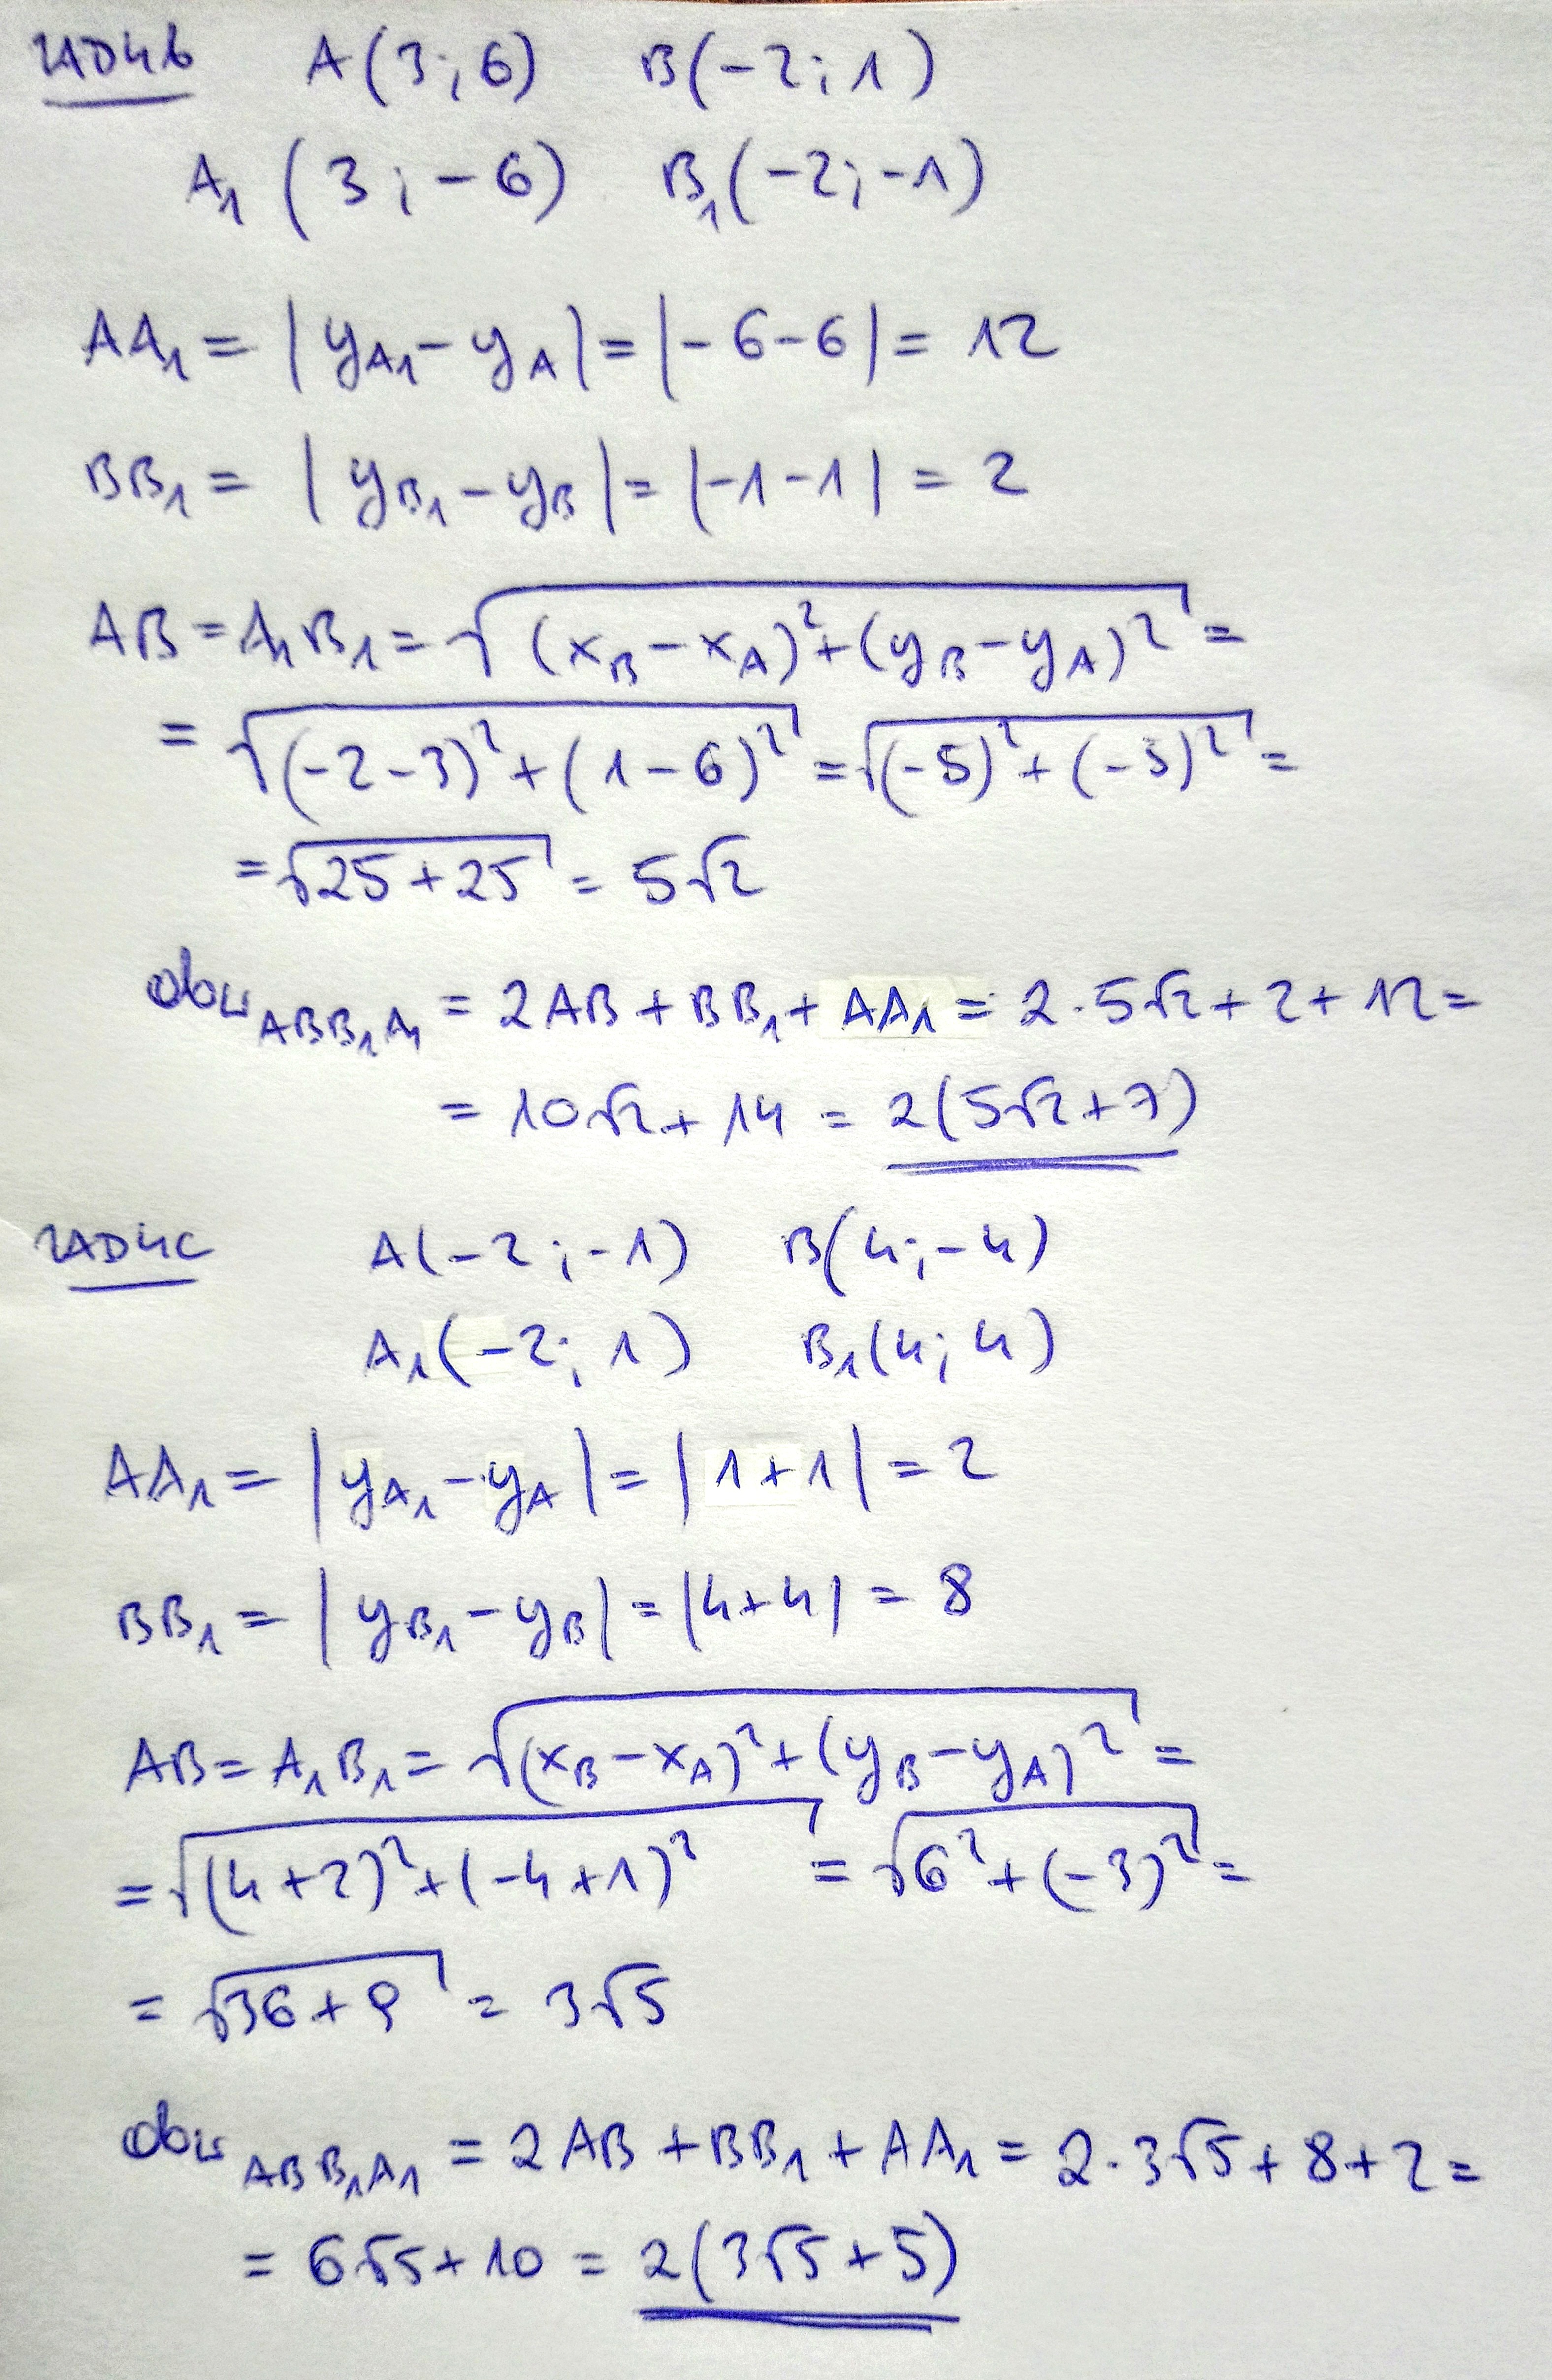 ZAD4b A(3;6) B(-2;1)
A₁(3;-6) B₁(-2;-1)
AA₁ = |y_A₁ - y_A| = |-6-6| = 12
BB₁ = |y_B₁ - y_B| = |-1-1| = 2
AB = A₁B₁ = √((x_B - x_A)² + (y_B - y_A)²) =
= √((-2-3)² + (1-6)²) = √((-5)² + (-5)²) =
= √(25+25) = 5√2
obw_ABB₁A₁ = 2AB + BB₁ + AA₁ = 2·5√2 + 2 + 12 =
= 10√2 + 14 = 2(5√2+7)
ZAD4C A(-2;-1) B(4;-4)
A₁(-2;1) B₁(4;4)
AA₁ = |y_A₁ - y_A| = |1+1| = 2
BB₁ = |y_B₁ - y_B| = |4+4| = 8
AB = A₁B₁ = √((x_B - x_A)² + (y_B - y_A)²) =
= √((4+2)² + (-4+1)²) = √(6² + (-3)²) =
= √(36+9) = 3√5
obw_ABB₁A₁ = 2AB + BB₁ + AA₁ = 2·3√5 + 8 + 2 =
= 6√5 + 10 = 2(3√5+5)